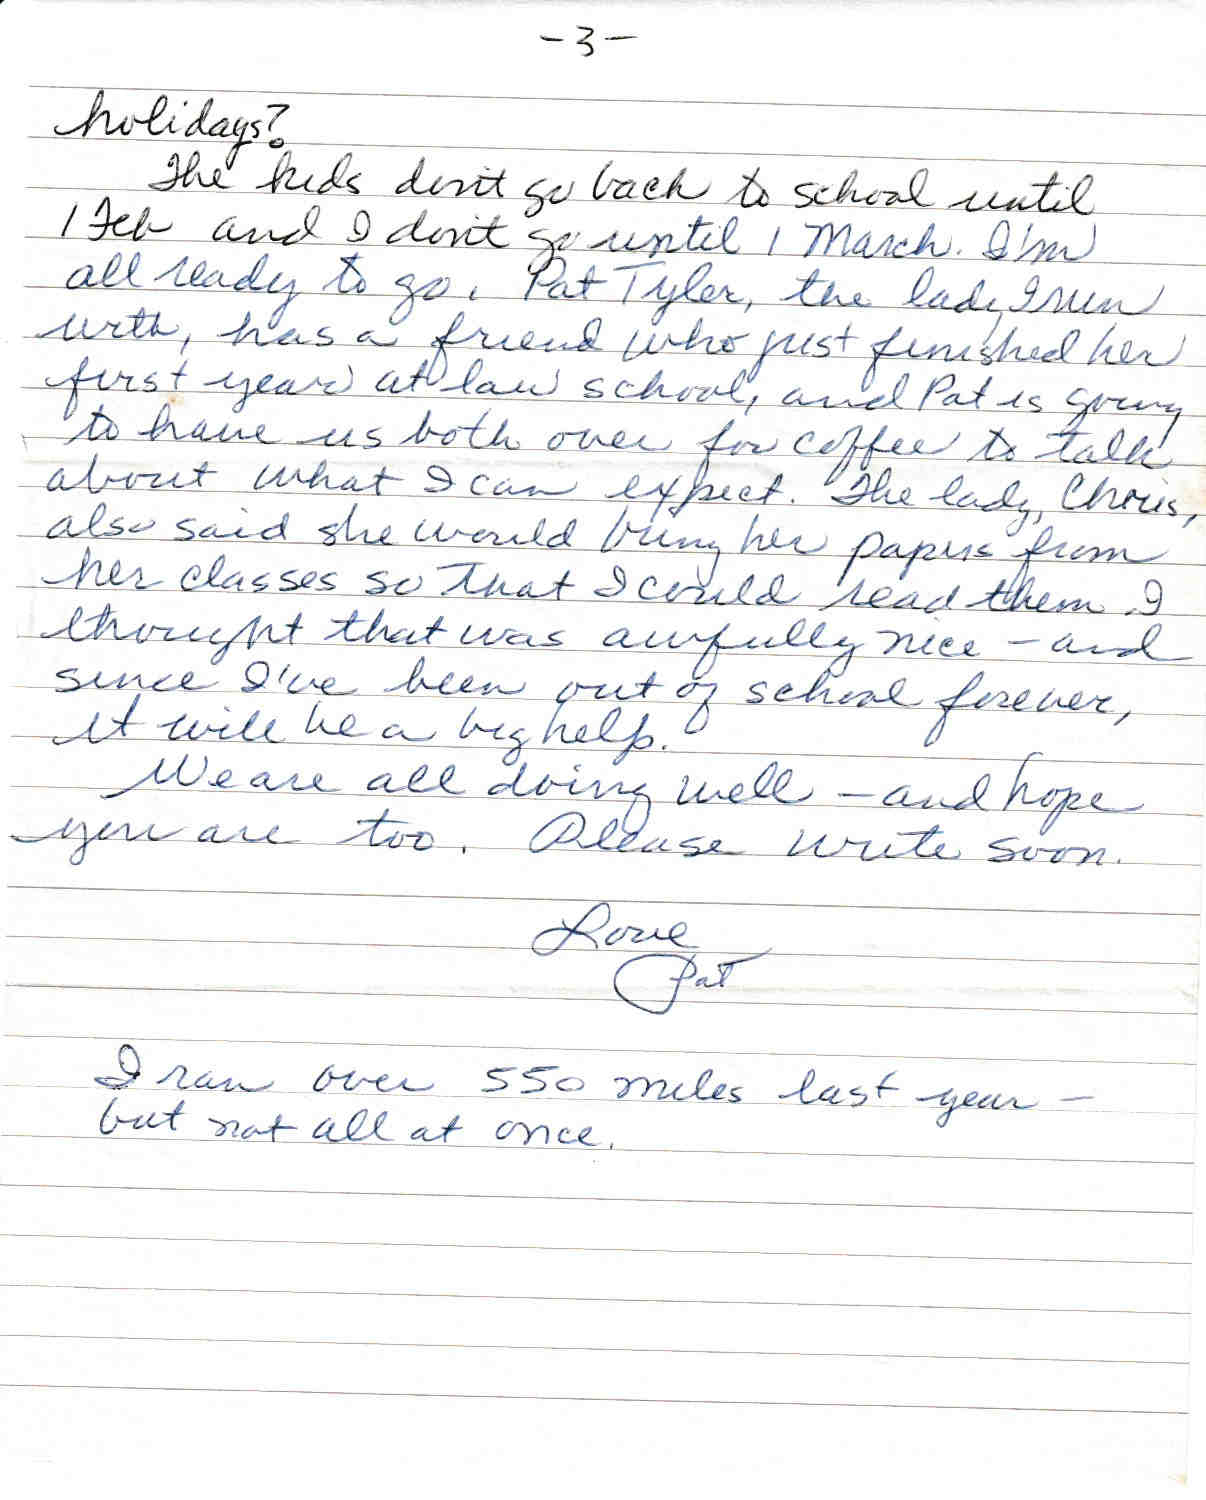 -3-
holidays?
The kids don't go back to school until
1 Feb and I don't go until 1 March. I'm
all ready to go. Pat Tyler, the lady I run
with, has a friend who just finished her
first year at law school, and Pat is going
to have us both over for coffee to talk
about what I can expect. The lady, Chris,
also said she would bring her papers from
her classes so that I could read them. I
thought that was awfully nice - and
since I've been out of school forever,
it will be a big help.
We are all doing well - and hope
you are too. Please write soon.
Love
Pat
I ran over 550 miles last year -
but not all at once.